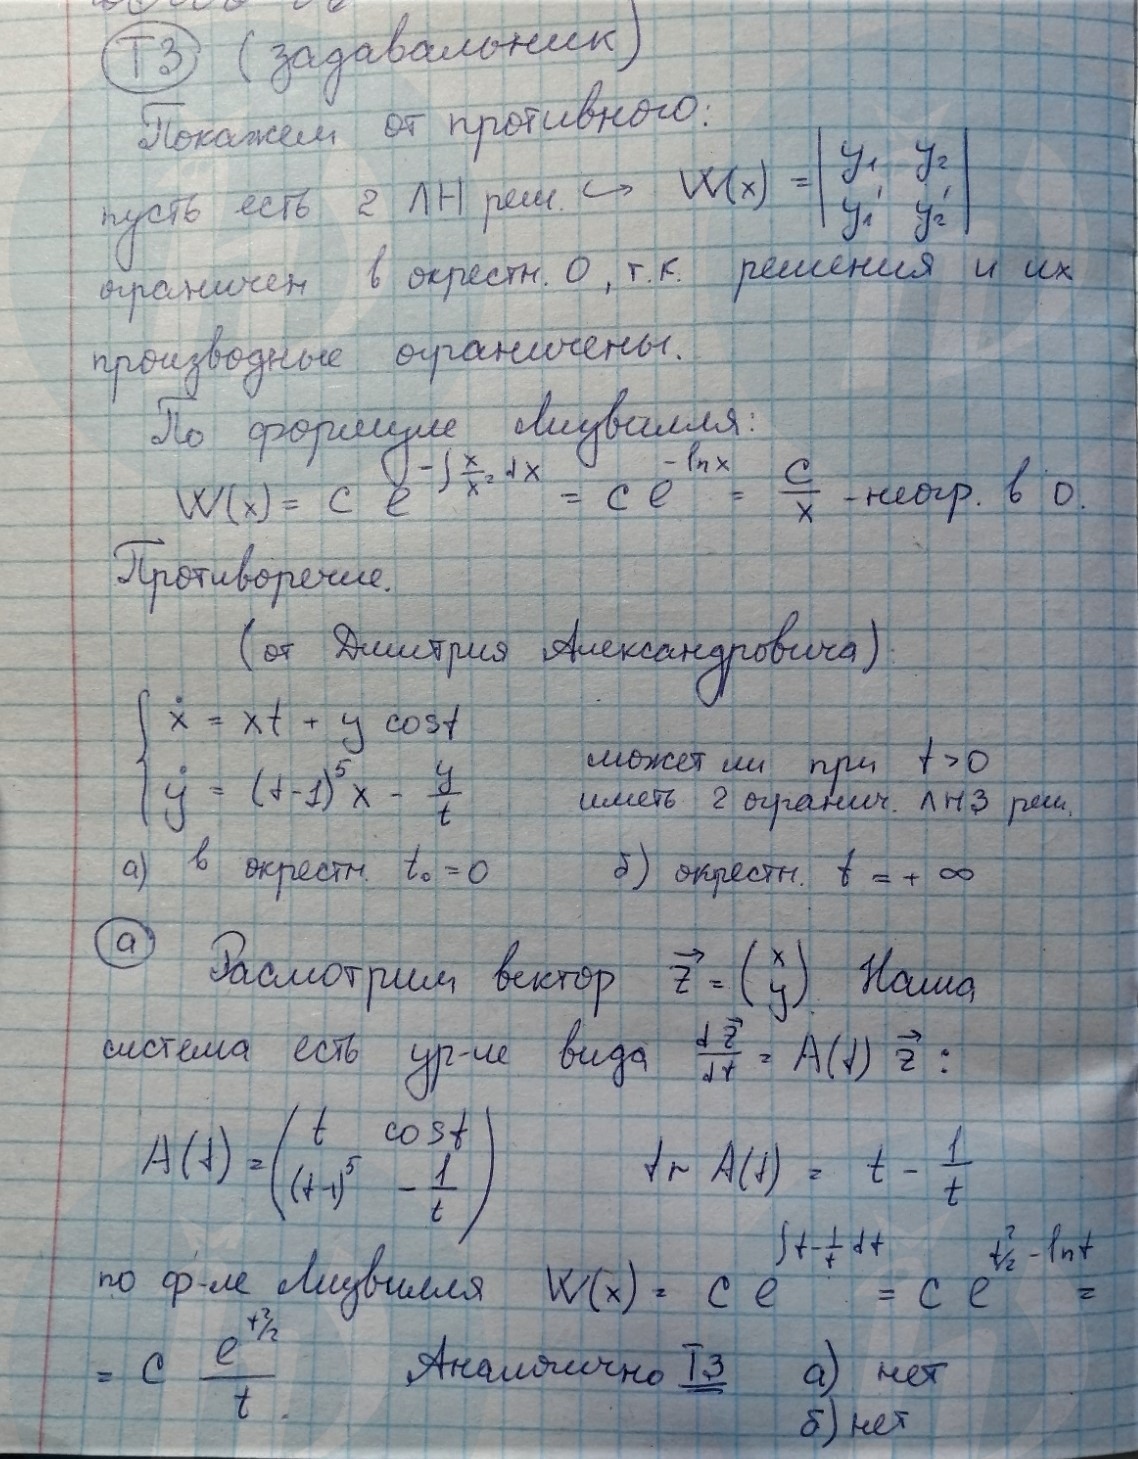 Т3 (задавальник)
Покажем от противного:
пусть есть 2 ЛН реш. ↪ W(x) = | y₁ y₂ |
| y₁' y₂' |
ограничен в окрестн. 0, т.к. решения и их
производные ограничены.
По формуле Лиувилля:
W(x) = C e^{-∫ x/x² dx} = C e^{-ln x} = C/x - неогр. в 0.
Противоречие.
(от Дмитрия Александровича)
{ ẋ = xt + y cost
{ ẏ = (t-1)⁵x - y/t
может ли при t>0
иметь 2 огранич. ЛНЗ реш.
а) в окрестн. t₀ = 0 б) окрестн. t = +∞
а Расмотрим вектор z⃗ = (x y). Наша
система есть ур-ие вида dz⃗/dt = A(t) z⃗ :
A(t) = ( t cost
(t-1)⁵ -1/t ) tr A(t) = t - 1/t
по ф-ле Лиувилля W(x) = C e^{∫t-1/t dt} = C e^{t²/2 - ln t} =
= C e^{t²/2}/t. Аналогично Т3 а) нет
б) нет